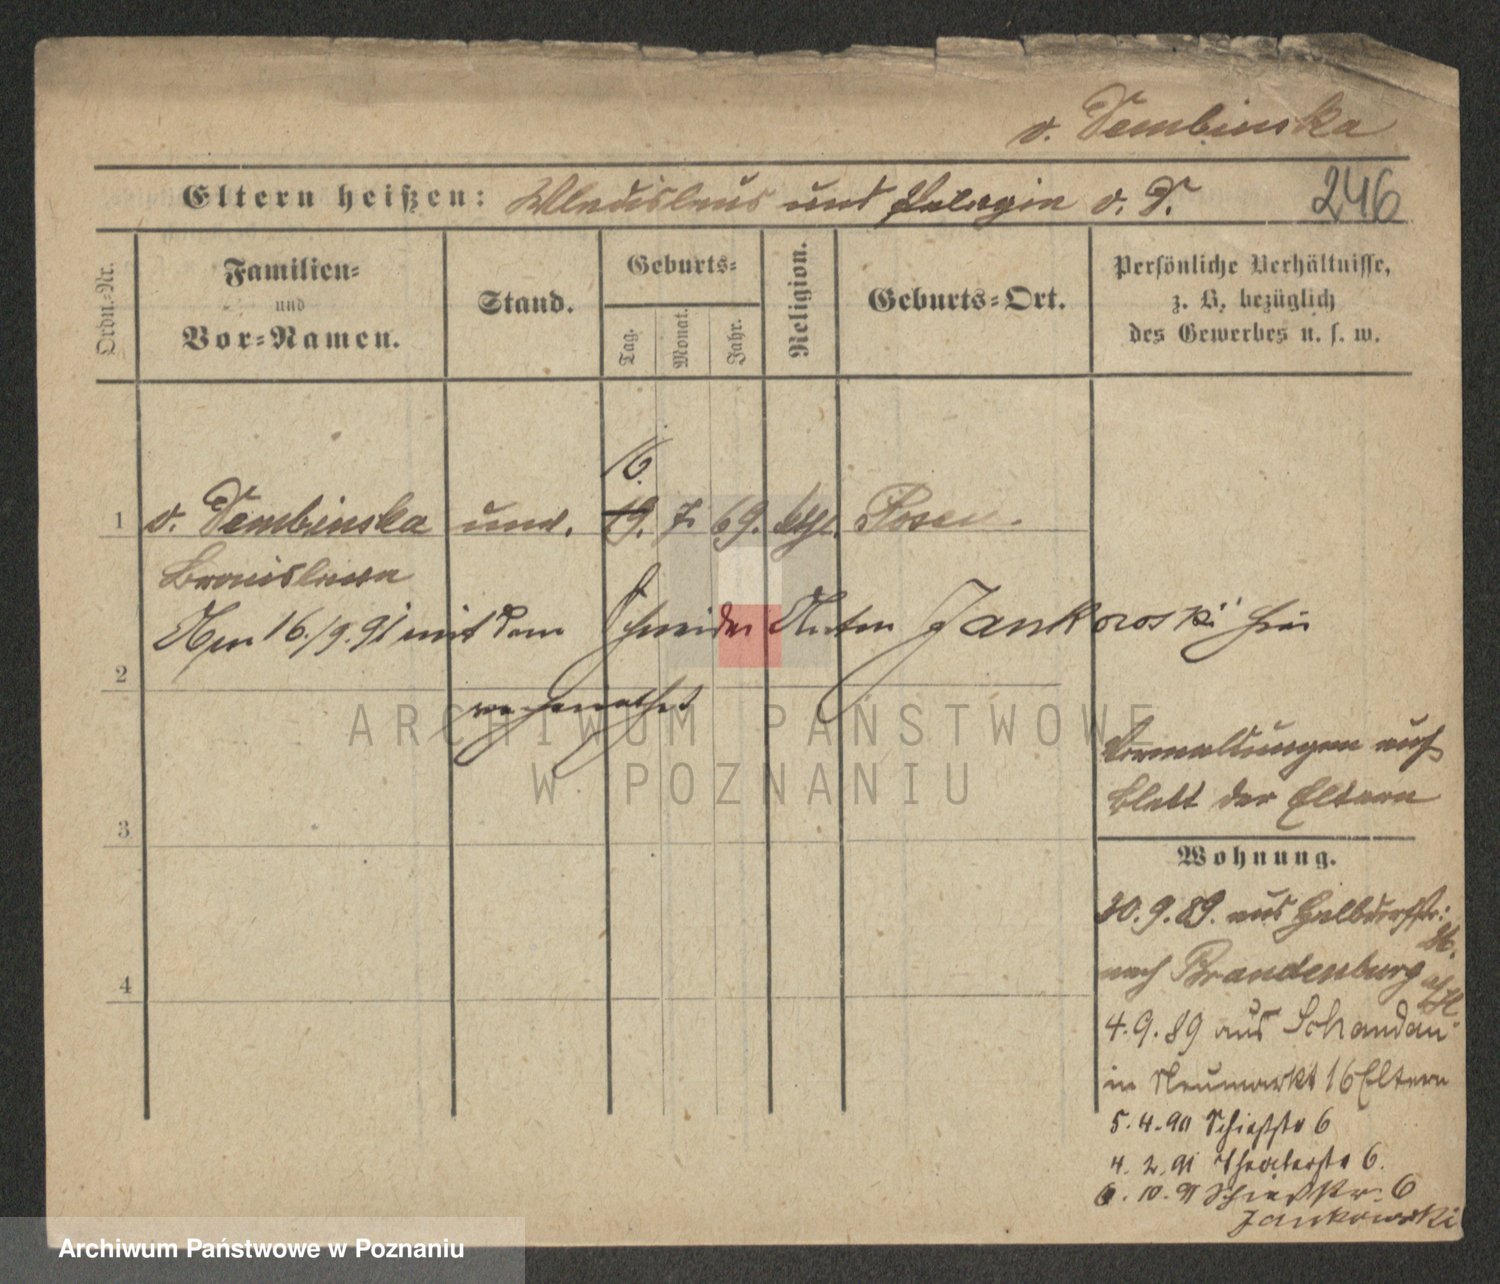 v. Dembinska
Eltern heißen: Wladislaus und Pelagia v. D.
246
Ordn.-Nr.
Familien-
und
Vor-Namen.
Stand.
Geburts-
Tag.
Monat.
Jahr.
Religion.
Geburts-Ort.
Persönliche Verhältnisse,
z. B. bezüglich
des Gewerbes u. s. w.
16.
1 v. Dembinska unv. 19. 7. 69. kth. Posen.
Bronislawa
Am 16./9.91 mit dem Schneider Anton Jankowski hier
2
verheirathet
ARCHIWUM PAŃSTWOWE
W POZNANIU
Vermeldungen auf
Blatt der Eltern
3
Wohnung.
30.9.89. aus Halbdorfstr.
nach Brandenburg a/H.
4
4.9.89 aus Schandau
in Neumarkt 16 Eltern
5.4.90 Schießstr 6
4.2.91 Theaterstr 6.
6.10.91 Schießstr. 6
Jankowski
Archiwum Państwowe w Poznaniu